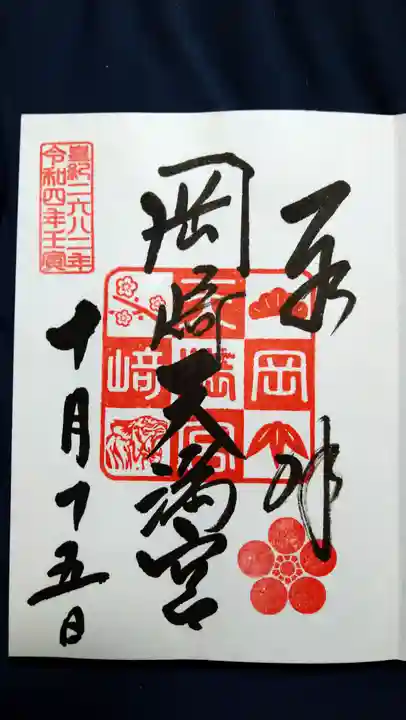 奉拝
岡崎天満宮
岡
﨑
天満宮
皇紀二六八二年
令和四年壬寅
十月十五日